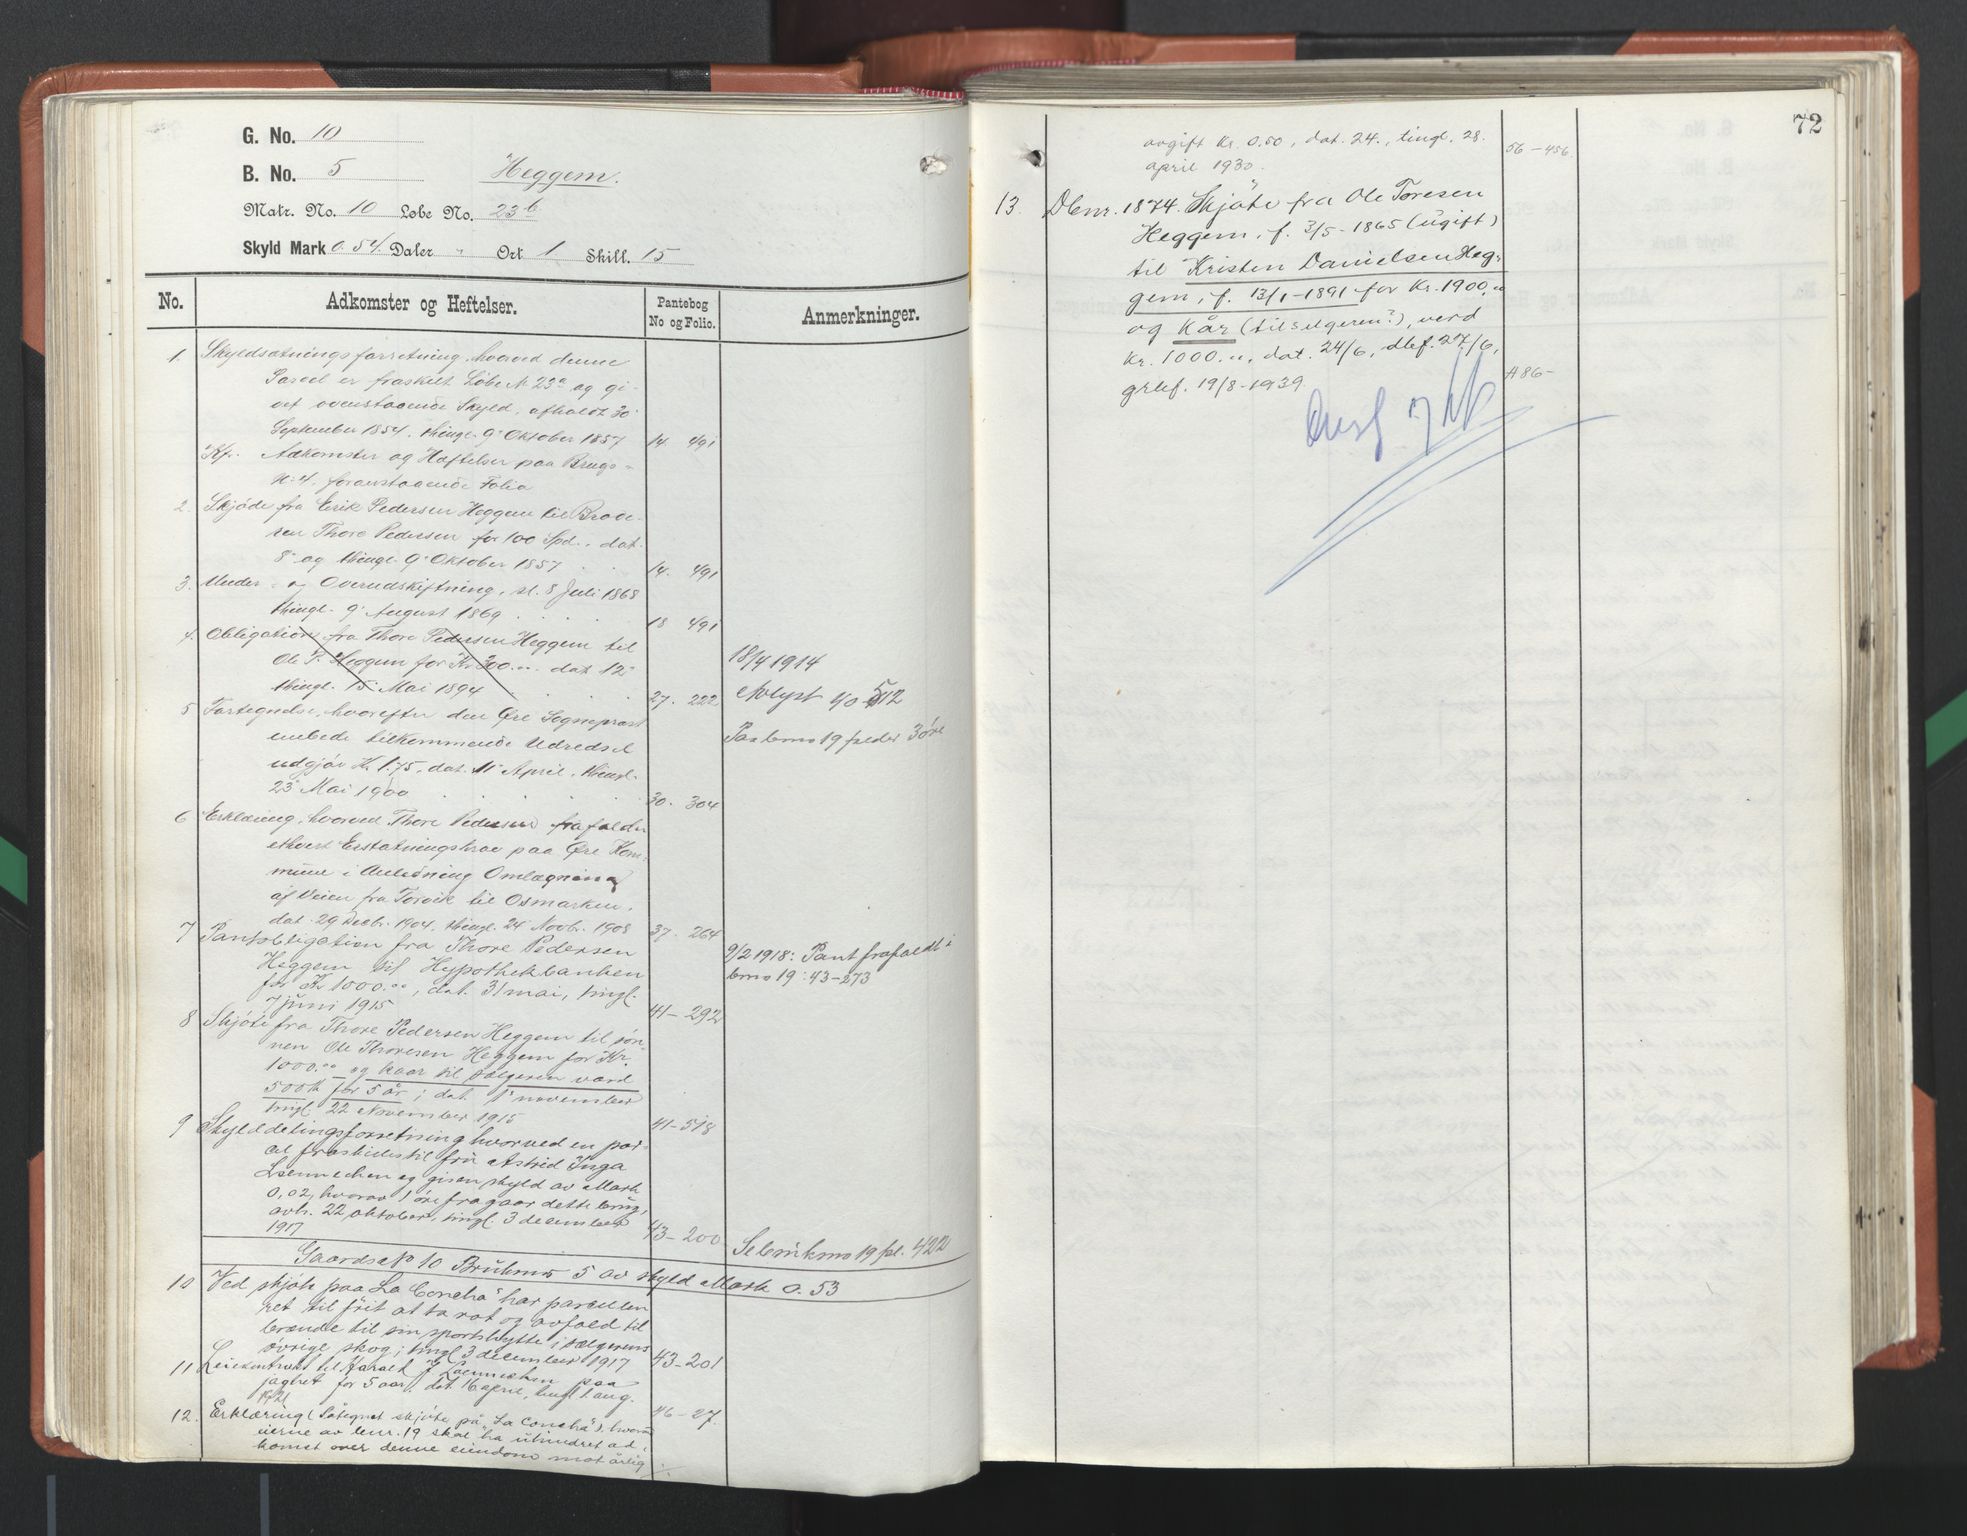 G. No. 10
B. No. 5 Heggem.
Matr. No. 10 Løbe No. 23 b
Skyld Mark 0.54. Daler " Ort 1 Skill. 15
No. Adkomster og Heftelser. Pantebog No og Folio. Anmerkninger.
1. Skyldsætningsforretning, hvorved denne
Parcel er fraskilt Løbe N. 23a og gi-
vet ovenstaaende Skyld, afholdt 30
September 1854, thingl. 9 Oktober 1857 14. 491
Kfr. Adkomster og Hæftelser paa Brugs-
N. 4, foranstaaende Folio
2. Skjøde fra Erik Pedersen Heggem til Brode-
ren Thore Pedersen for 100 Spd., dat.
8 og thingl. 9 Oktober 1857 14. 491
3. Under- og Overudskiftning, sl. 8 Juli 1868
thingl. 9 August 1869 18 491
4. Obligation fra Thore Pedersen Heggem til
Ole P. Heggem for Kr 300.00 dat 12
thingl. 15 Mai 1894 27. 222
18/4 1914
Avlyst 40 512
5 Fortegnelse, hvorefter den Øre Sogneprest
embede tilkommende Udredsel
udgjør K. 1.75, dat. 11 April, thingl.
23 Mai 1900 30. 304
Paa bno 19 falder 3 øre
6 Erklæring, hvorved Thore Pedersen frafalder
ethvert Erstatningskrav paa Øre Kom-
mune i Anledning Omlægning
af Veien fra Torvik til Osmarken,
dat. 29 Decbr. 1904, thingl. 24 Novbr. 1908 37. 264
7 Pantobligation fra Thore Pedersen
Heggem til Hypothekbanken
for Kr 1000.00, dat. 31 mai, tingl.
7 juni 1915 41-292
9/2 1918: Pant frafaldt i
bno 19: 43-273
8 Skjøte fra Thore Pedersen Heggem til søn-
nen Ole Thoresen Heggem for Kr.
1000.00 og kaar til sælgeren værd
500 Kr for 5 år; dat. 1 november
tingl. 22 November 1915 41-518
9 Skylddelingsforretning hvorved en par-
cel fraskilles til fru Astrid Inga
Lsennechen og given skyld av Mark
0,02, hvorav 1 øre fragaar dette brug,
avh. 22 oktober, tingl. 3 december
1917 43-200
Se bruksno 19 fol. 422
Gaards No 10 Bruksno 5 av skyld Mark 0.53
10 Ved skjøte paa "La Concha" har parcellen
ret til frit at ta rot og avfald til
brænde til sin sportshytte i sælgerens
øvrige skog; tingl 3 december 1917 43-201
11 Leiekontrakt til Harald J. Lsennechen paa
jagtret for 5 aar, dat. 16 april, tingl 1 aug.
1921 46-27.
12. Erklæring (påtegnet skjøte på "La Concha"), hvor
eierne av bnr. 19 skal ha uhindret ad-
komst over denne eiendom mot årlig
72
avgift kr. 0.50, dat. 24., tingl. 28.
april 1930. 56-456.
13. Dbnr. 1874. Skjøte fra Ole Toresen
Heggem, f. 3/5-1865 (ugift)
til Kristen Danielsen Heg-
gem, f. 13/1-1891 for kr. 1900.00
og kår (til selgeren?), verd
kr. 1000.00, dat. 24/6, dbf. 27/6,
grbf. 19/8-1939. A 86-